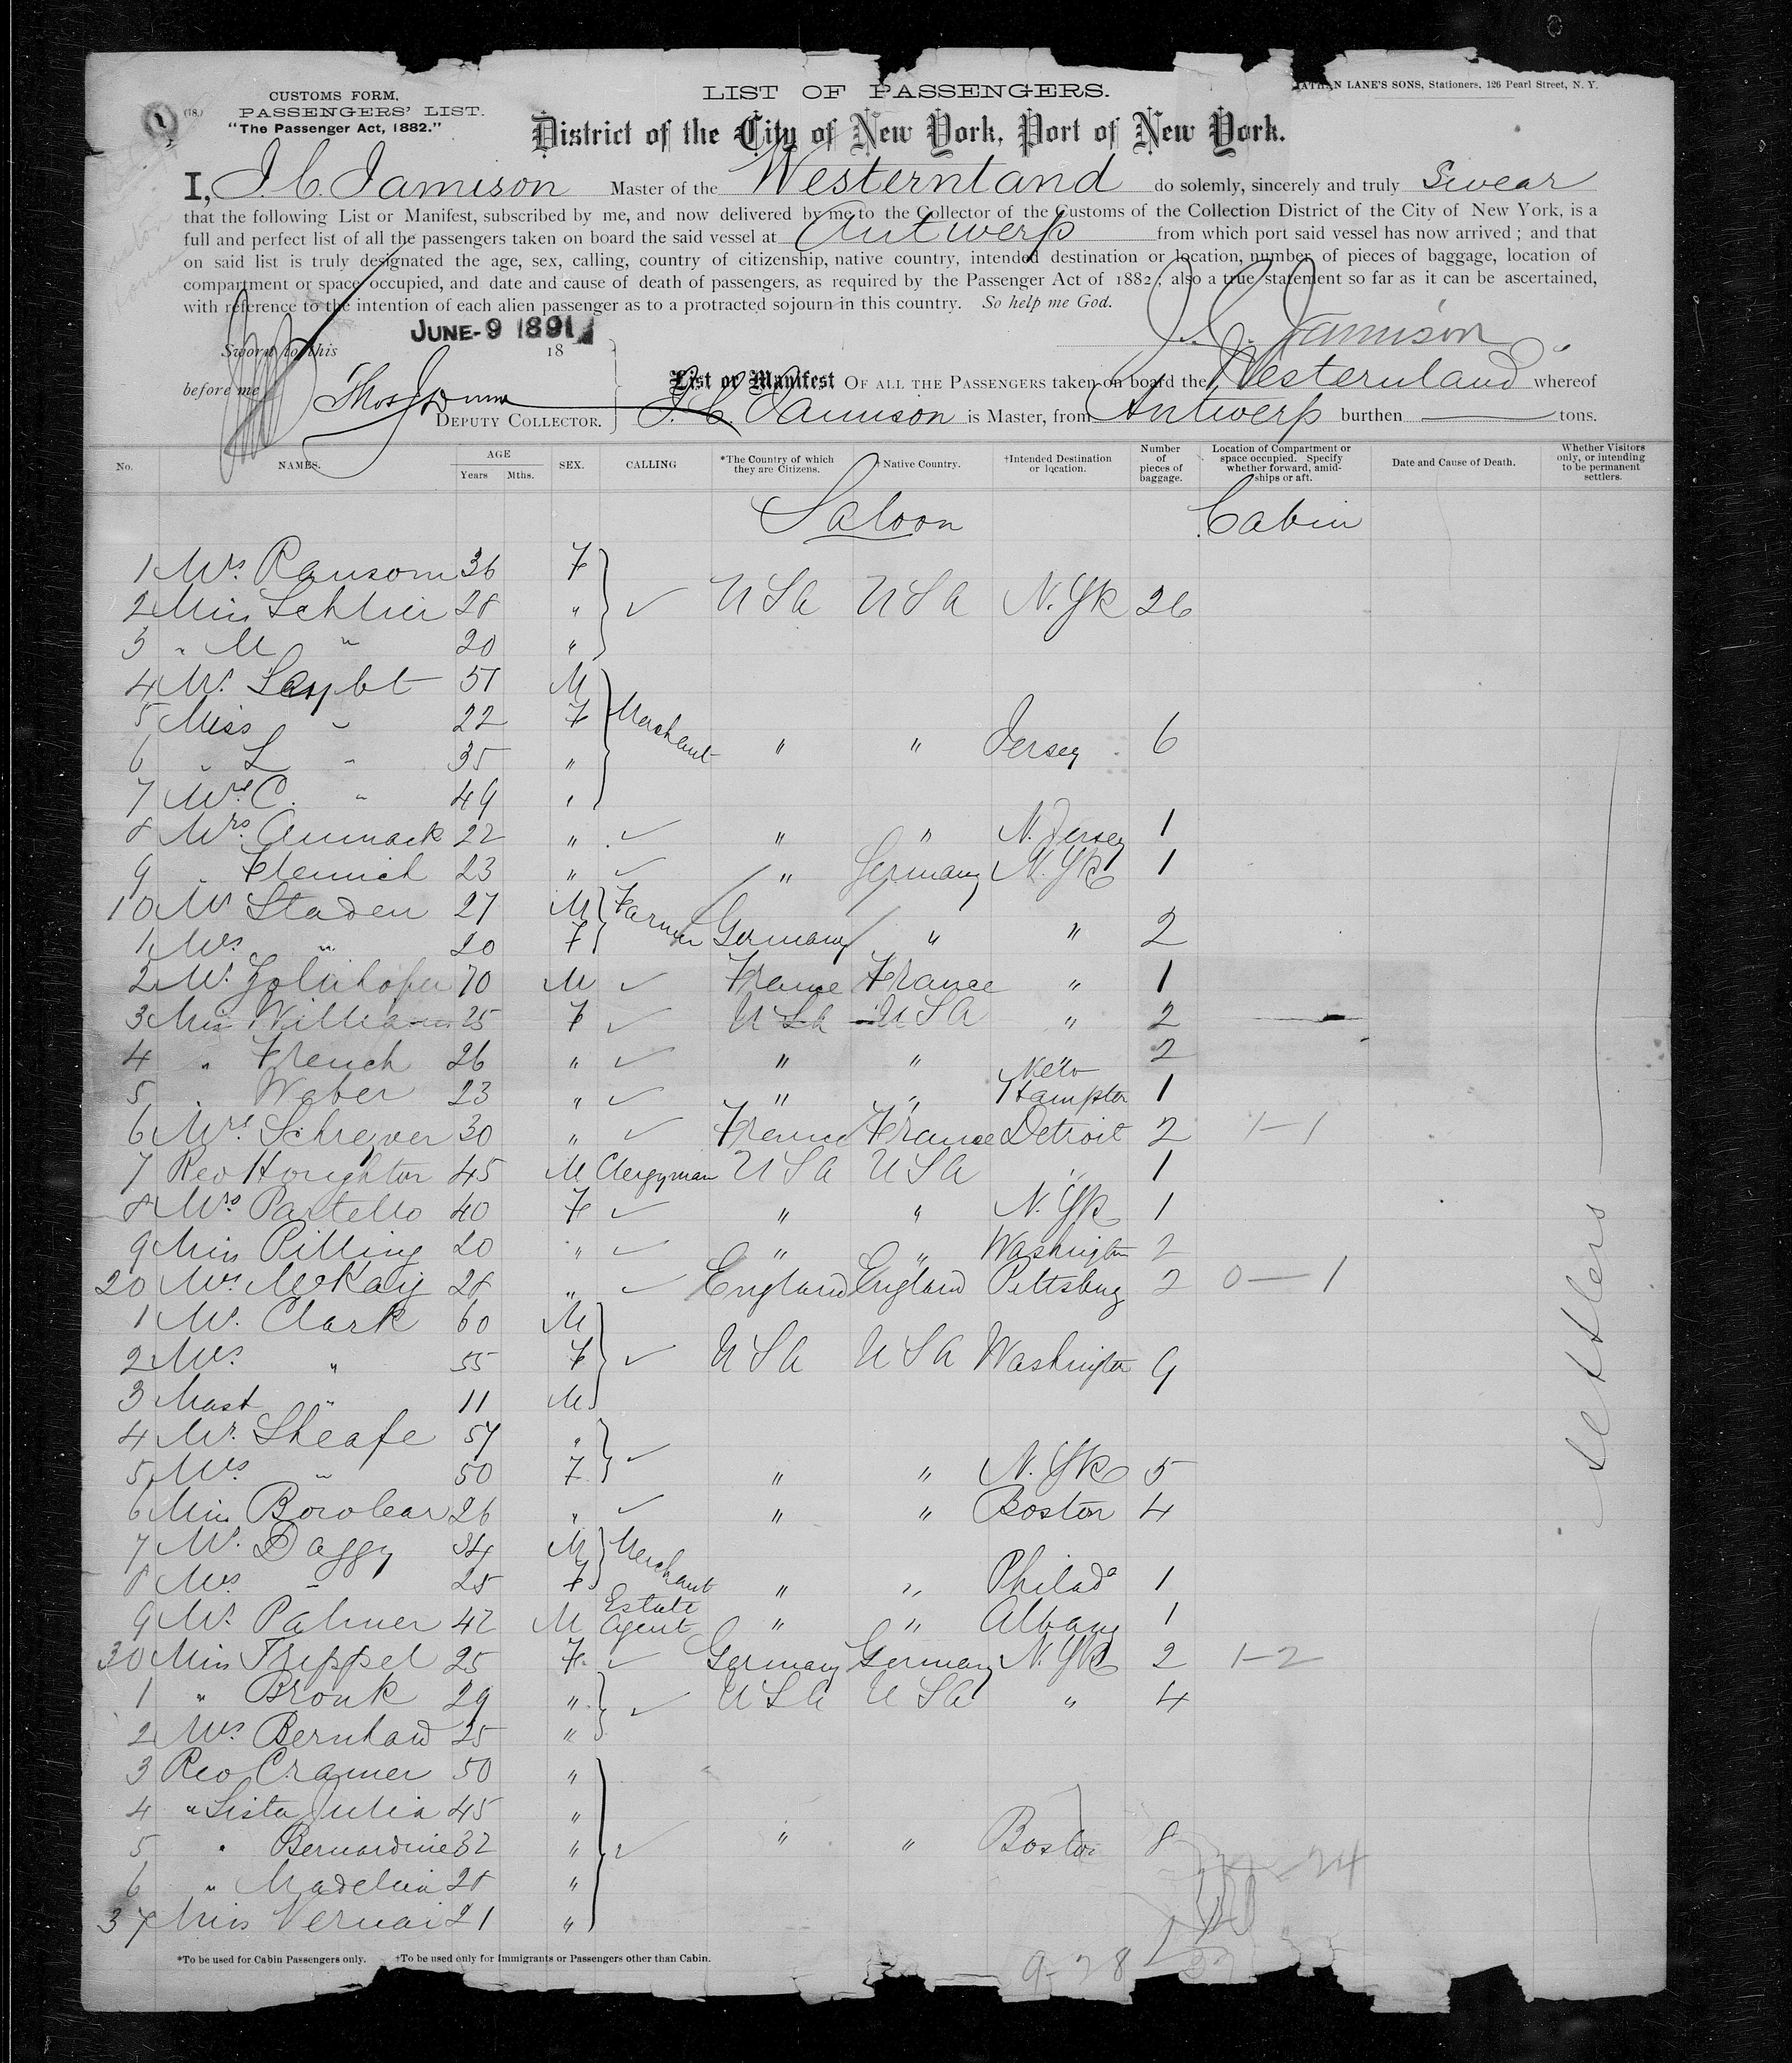 LIST OF PASSENGERS.
CUSTOMS FORM,
PASSENGERS' LIST.
"The Passenger Act, 1882."
LANE'S SONS, Stationers, 126 Pearl Street, N. Y.
District of the City of New York, Port of New York.
I, J. C. Jamison Master of the Westernland do solemnly, sincerely and truly Swear
that the following List or Manifest, subscribed by me, and now delivered by me to the Collector of the Customs of the Collection District of the City of New York, is a
full and perfect list of all the passengers taken on board the said vessel at Antwerp from which port said vessel has now arrived ; and that
on said list is truly designated the age, sex, calling, country of citizenship, native country, intended destination or location, number of pieces of baggage, location of
compartment or space occupied, and date and cause of death of passengers, as required by the Passenger Act of 1882 ; also a true statement so far as it can be ascertained,
with reference to the intention of each alien passenger as to a protracted sojourn in this country. So help me God.
JUNE-9 1891
J. C. Jamison
Sworn to this 18
before me
DEPUTY COLLECTOR.
List or Manifest OF ALL THE PASSENGERS taken on board the Westernland whereof
J. C. Jamison is Master, from Antwerp burthen tons.
No. NAMES. AGE Years Mths. SEX. CALLING *The Country of which they are Citizens. †Native Country. †Intended Destination or location. Number of pieces of baggage. Location of Compartment or space occupied. Specify whether forward, amidships or aft. Date and Cause of Death. Whether Visitors only, or intending to be permanent settlers.
Saloon Cabin
1 Mrs. Ransom 36 F
2 Miss 28 " USA USA N.Yk 26
3 " M " 20 "
4 Mr. 51 M Merchant
5 Miss " 22 F
6 " L " 35 " " " Jersey 6
7 Mrs C. " 49 "
8 Mrs. 22 " " " N. Jersey 1
9 " 23 " " Germany N.Yk 1
10 Mr Staden 27 M Farmer
1 Mrs. " 20 F Germany " " 2
2 Mr. 70 M France France " 1
3 Miss Williams 25 F USA USA " 2
4 " French 26 " " " " 2
5 " Weber 23 " " " New Hampton 1
6 Mrs. Schreyer 30 " France France Detroit 2 1-1
7 Rev Houghton 45 M Clergyman USA USA " 1
8 Mrs. Partello 40 F " " N.Yk 1
9 Miss Pilling 20 " " " Washington 2
20 Mrs. McKaig 28 " England England Pittsburg 2 0-1
1 Mr. Clark 60 M
2 Mrs. " 55 F USA USA Washington 9
3 Mast " 11 M
4 Mr. Sheafe 57 "
5 Mrs " 50 F " " N.Yk 5
6 Miss Bowlear 26 " " " Boston 4
7 Mr. Daggy 34 M Merchant
8 Mrs. " 25 F " " Philada 1
9 Mr. Palmer 42 M Estate Agent " " Albany 1
30 Miss Trippel 25 F Germany Germany N.Yk 2 1-2
1 " Bronk 29 " USA USA " 4
2 Mrs. Bernhard 25 "
3 Rev Cramer 50 "
4 " Sister Julia 45 "
5 " Bernardine 32 " " " Boston 8
6 " Madelein 28 "
37 Miss 21 "
settlers
24
9-28
*To be used for Cabin Passengers only. †To be used only for Immigrants or Passengers other than Cabin.